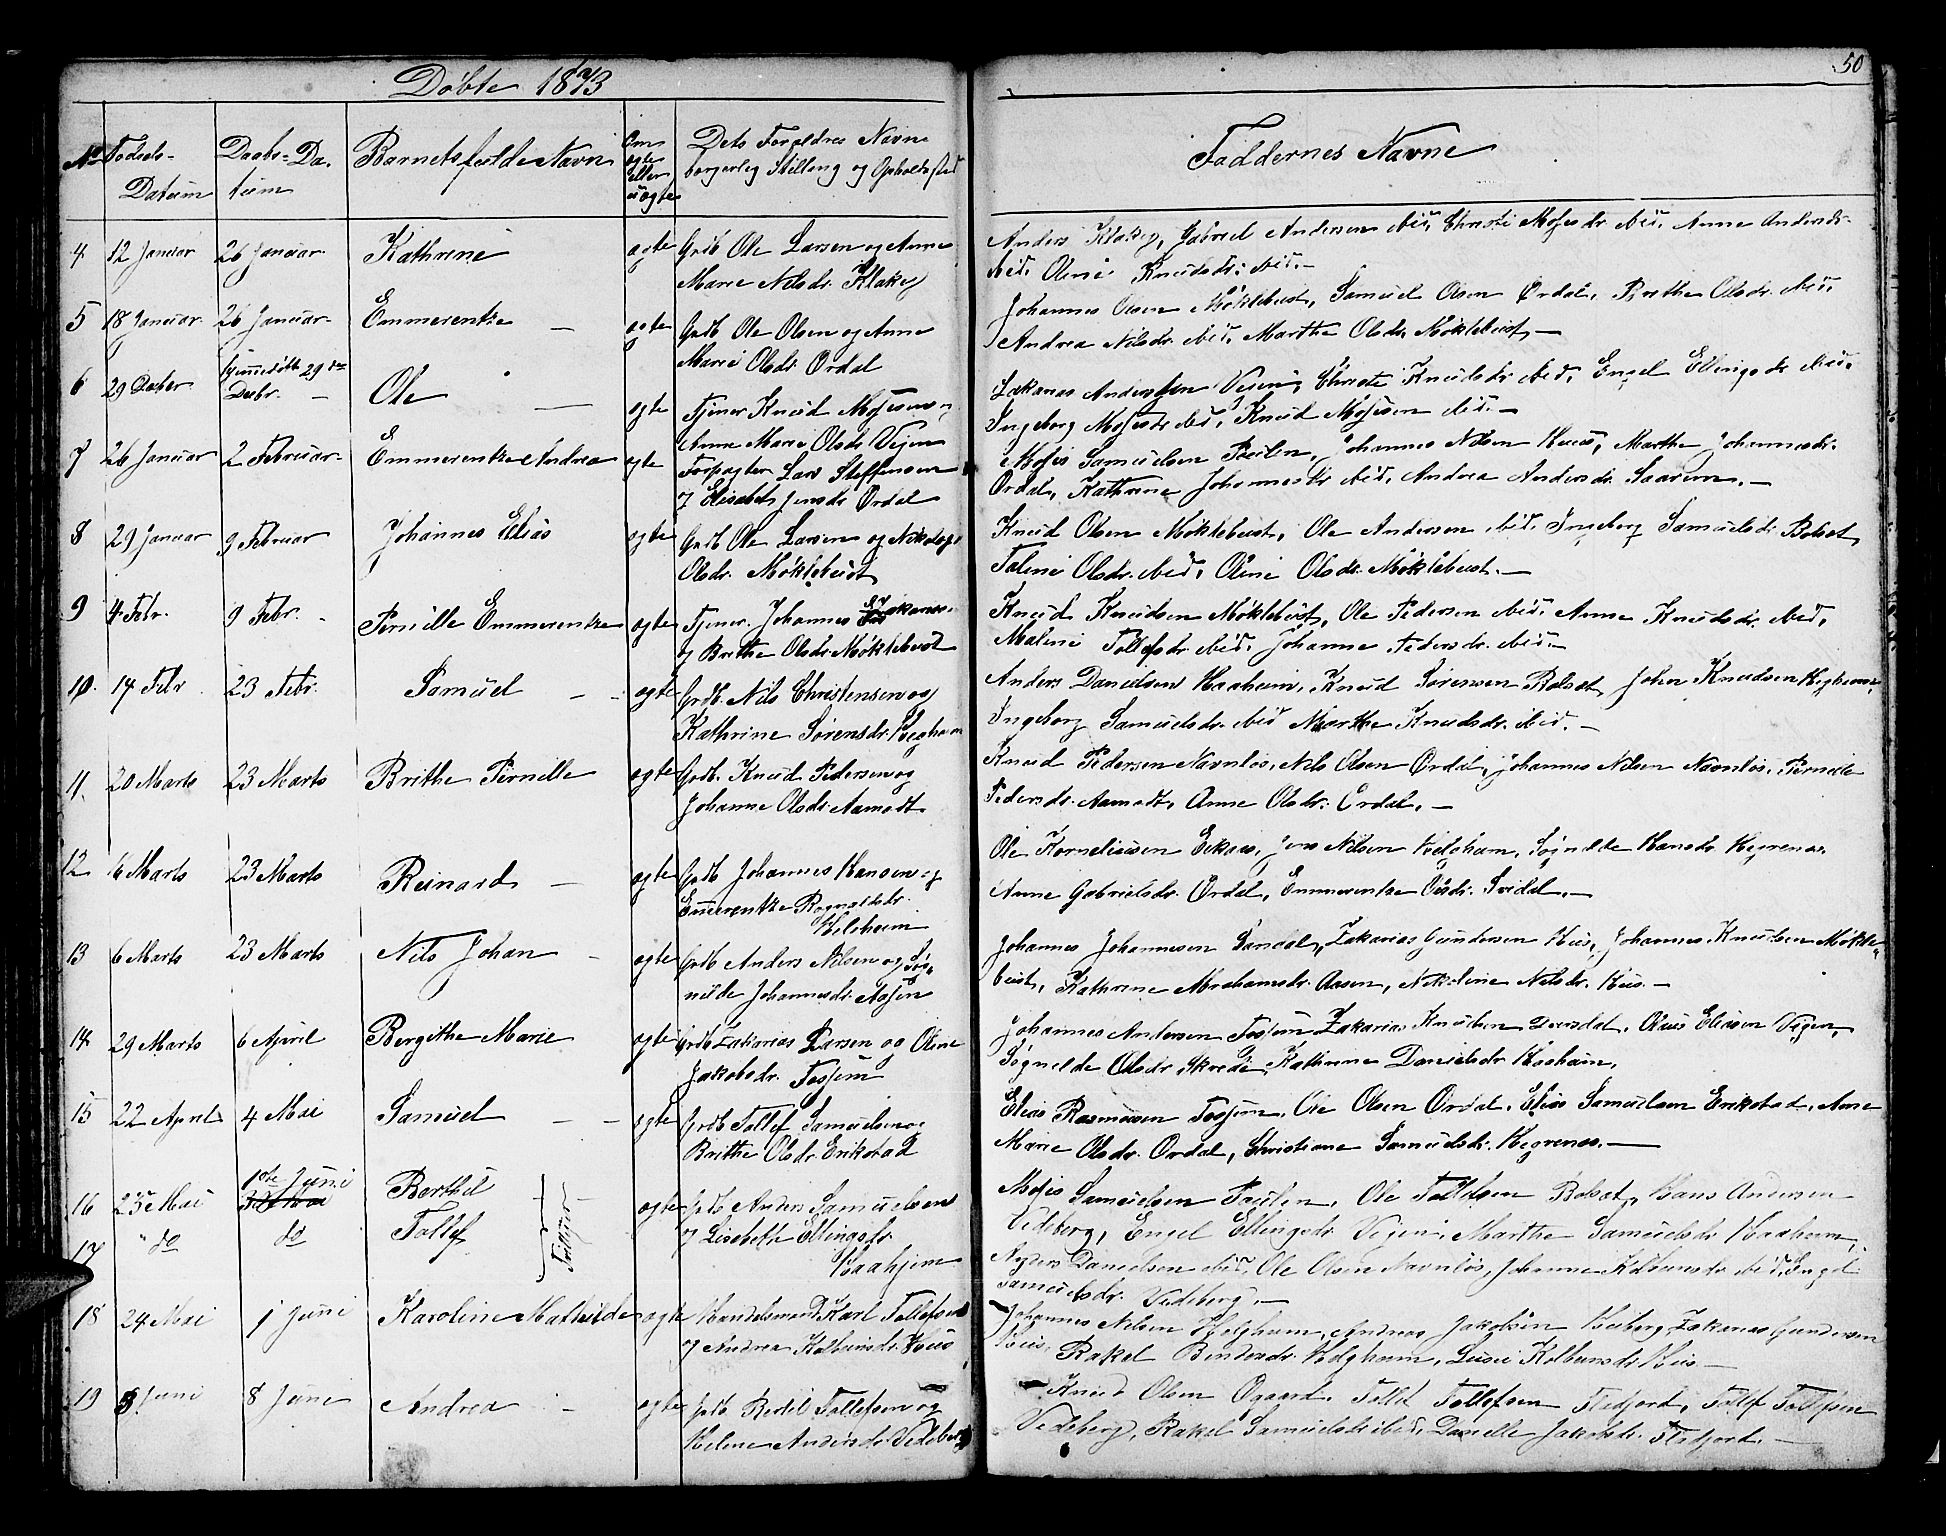 Døbte 1873
50
No
Fødsels-
Datum
Daabs-Da-
tum
Barnets fulde Navn
Om
ægte
eller
uægte
Dets Forældres Navne
borgerlig Stilling og Opholdssted
Faddernes Navne
4 12 Januar 26 Januar Kathrine ægte Grdb Ole Larsen og Anne
Marie Nilsdr. Klakeg
Anders Klakeg, Gabriel Andersen ibid, Christi Mosesdr ibid, Anne Andersdr
ibid. Oline Knudsdr. ibid.
5 18 Januar 26 Januar Emmerentze ægte Grdb Ole Olsen og Anne
Marie Olsdr. Ordal
Johannes Olsen Møklebust, Samuel Olsen Ordal, Brithe Olsdr. ibid,
Andrea Nilsdr. ibid, Marthe Olsdr. Møklebust,
6 29 Decber hjemmedøbt 29de
Decbr. Ole ægte Tjener Knud Mosesen og
Anne Marie Olsdr. Vigen
Zakarias Andersen Vigen, Christi Knudsdr ibid, Engel Ellingsdr ibid,
Ingeborg Mosesdr ibid, Knud Mosesen ibid.
7 26 Januar 2 Februar Emmerentze Andrea ægte Forpagter Lars Steffensen
og Elisabet Jensdr Ordal
Moses Samuelsen, Johannes Nilsen Huus, Marthe Johannesdr.
Ordal, Kathrine Johannesdr ibid, Andrea Andersdr.
8 29 Januar 9 Februar Johannes Elias ægte Grdb Ole Larsen og
Olsdr. Møklebust
Knud Olsen Møklebust, Ole Andersen ibid, Ingeborg Samuelsdr. Bolset,
Taline Olsdr. ibid, Oline Olsdr. Møklebust.
9 4 Febr. 9 Febr. Pernille Emmerentze ægte Tjener. Johannes Zakarias.
og Brithe Olsdr Møklebust
Knud Knudsen Møklebust, Ole Pedersen ibid, Anne Knudsdr. ibid,
Maline Tollefsdr ibid, Johanne Pedersdr. ibid.
10. 14 Febr 23 Febr. Samuel ægte Grdb Nils Christensen og
Kathrine Sørensdr.
Anders Danielsen Haaheim, Knud Sørensen Bolset, John Knudsen
Ingeborg Samuelsdr. ibid Marthe Knudsdr. ibid.
11. 20 Marts 23 Marts Brithe Pernille ægte Grdb. Knud Pedersen og
Johanne Olsdr. Aamodt
Knud Pedersen Navnløs, Nils Olsen Ordal, Johannes Nilsen Navnløs, Pernille
Pedersdr. Aamodt, Anne Olsdr. Ordal.
12 6 Marts 23 Marts Reinard ægte Grdb Johannes Hansen og
Emmerentze Rognaldsdr.
Ole Korneliussen, Jens Nilsen Helgheim, Søgnilde Hansdr Hegrenes.
Anne Gabrielsdr. Ordal, Emmerentze Olsdr.
13 6 Marts 23 Marts Nils Johan ægte Grdb Anders Nilsen og Søg-
nilde Johannesdr.
Johannes Johannesen Sandal, Zakarias Gundersen Huus, Johannes Knudsen Møkle-
bust, Kathrine Abrahamsdr. Aasen, Nikoline Nilsdr. Huus.
14 29 Marts 6 April Bergithe Marie ægte Grdb Zakarias Larsen og Oline
Jakobsdr. Fosjem
Johannes Andersen Fosjem Zakarias Knudsen, Elias Eliasen Vigen,
Søgnilde Olsdr. Skrede, Kathrine Danielsdr. Haaheim.
15 22 April 4 Mai Samuel ægte Grdb Tollef Samuelsen og
Brithe Olsdr. Erikstad
Elias Rasmussen Fosjem, Ole Olsen Ordal, Elias Samuelsen Erikstad, Anne
Marie Olsdr. Ordal, Christiane Samuelsdr. Hegrenes.
16 23de Mai 1ste Juni Berthil ægte Grdb Anders Samuelsen
17 do do Tollef og Lisebeth Ellingsdr.
Haahjem
Tvillinger
Moses Samuelsen, Ole Tollefsen Bolset, Hans Andersen
Vedeberg, Engel Ellingsdr. Vigen, Marthe Samuelsdr. Haaheim,
Anders Danielsen ibid, Ole Olsen Navnløs, Johanne ibid, Engel
Samuelsdr. Vedeberg.
18 24 Mai 1 Juni Karoline Mathilde ægte Handelsmand Karl Tollefsen
og Andrea Kolbeinsdr. Huus
Johannes Nilsen Helgheim, Andreas Jakobsen, Zakarias Gundersen
Huus, Rakel Bendixdr. Helgheim, Kolbeinsdr. Huus
19 3 Juni 8 Juni Andrea ægte Grdb Bertil Tollefsen og
Helene Andersdr. Vedeberg
Knud Olsen Ogaard, Tollef Tollefsen Flatjord, Tollef Tollefsen
Vedeberg, Rakel Samuelsdr. ibid, Danelle Jakobsdr. Flatjord.